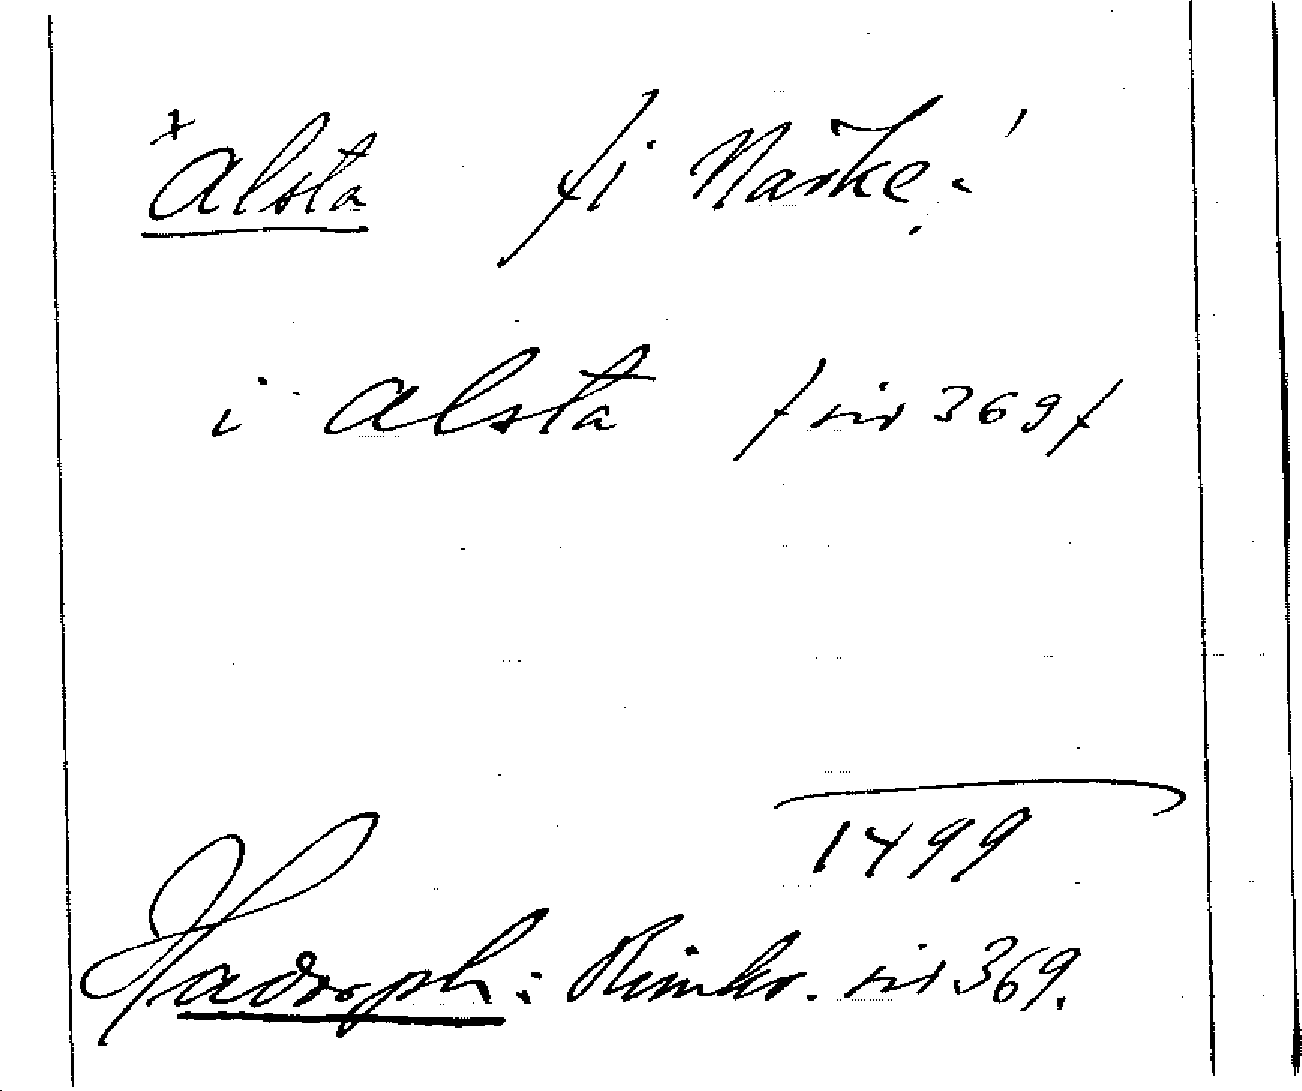 +
Alsta /i Närke.
i Alsta / sid 369/
1499
Hadorph: Rimkr. sid 369.